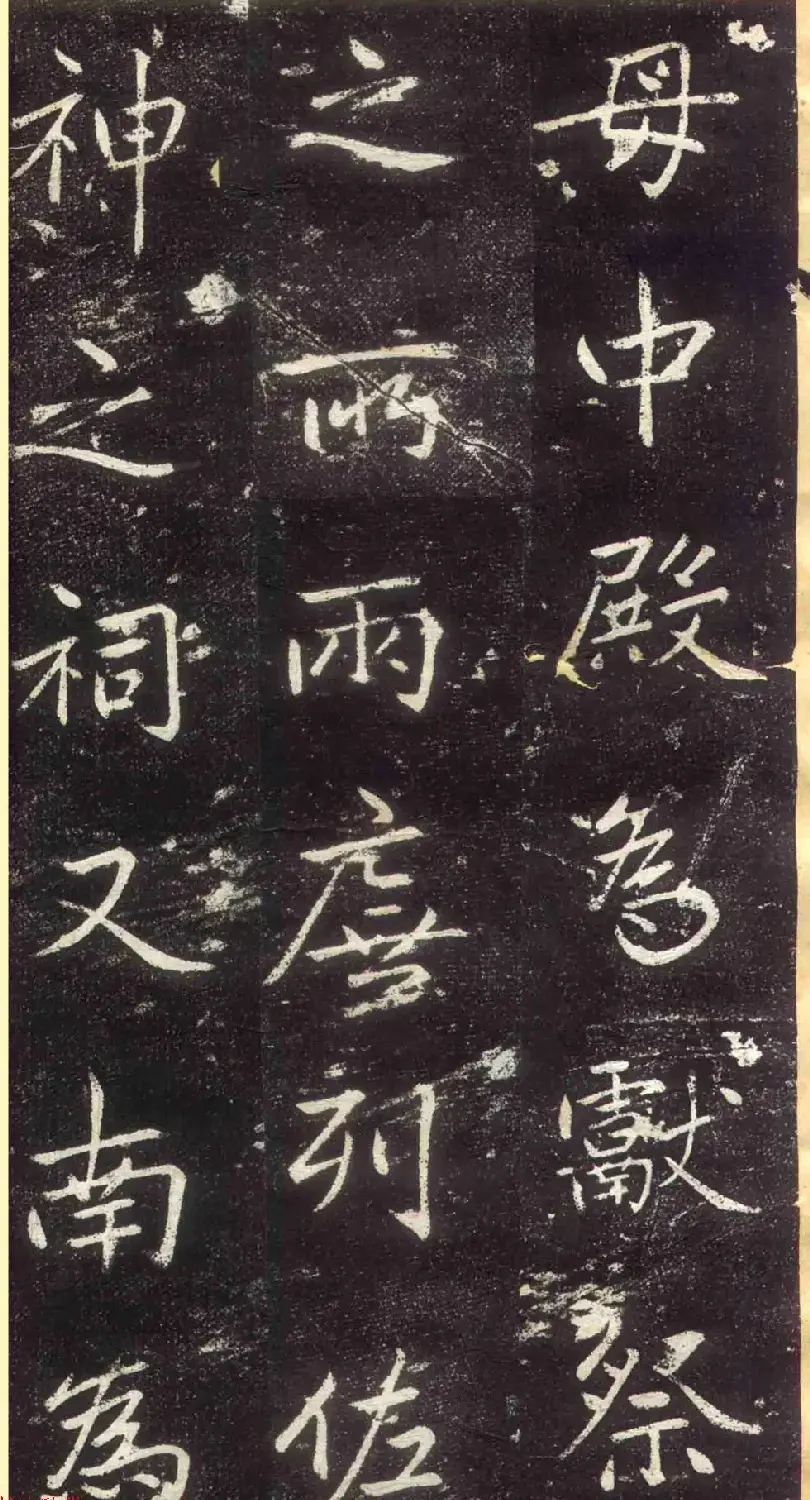 母中殿為獻祭
之所兩廡列佐
神之祠又南為